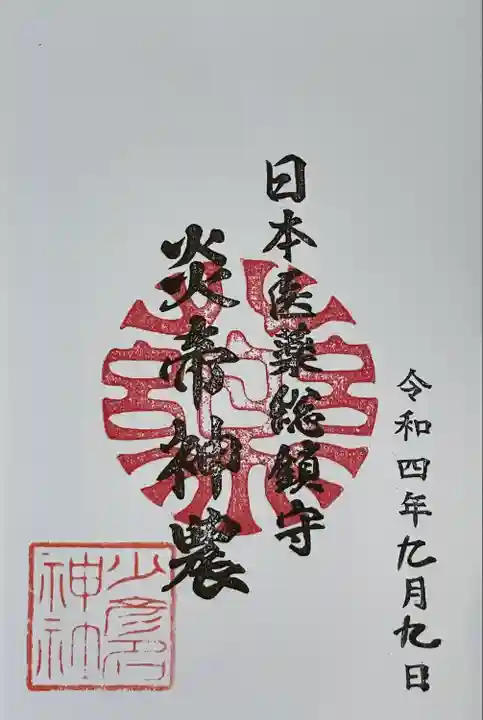 日本医薬総鎮守
炎帝神農
令和四年九月九日
少彦名
神社